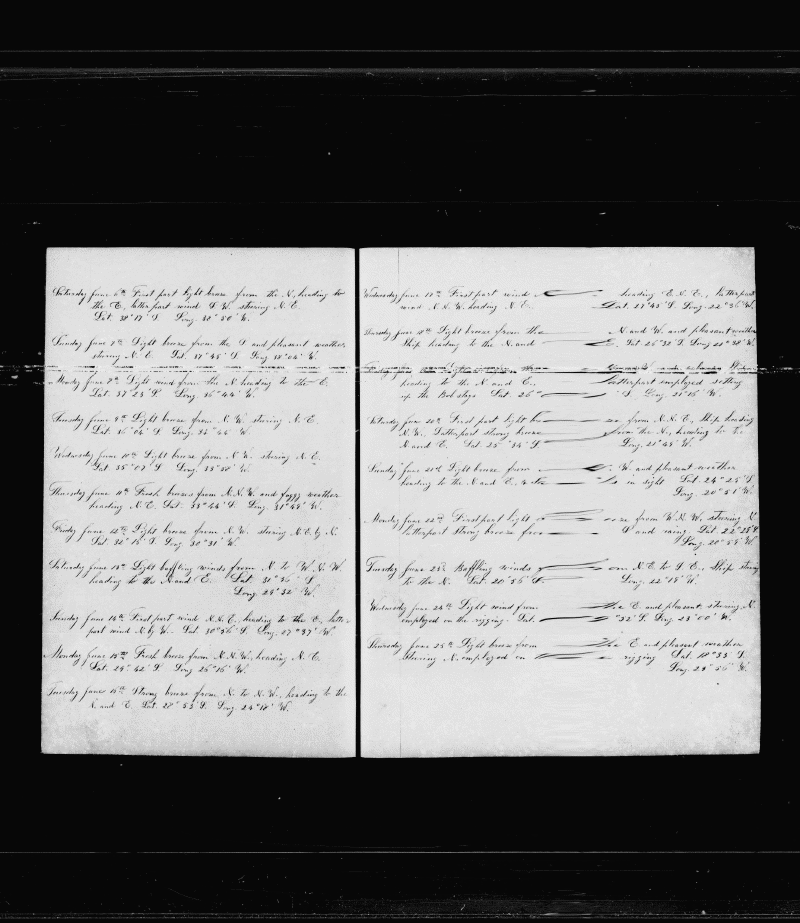 Saturday June 6th First part light breeze from the N, heading to
the E, latter part wind S. W. steering N. E.
Lat. 38° 17' S. Long. 40° 50' W.
Sunday June 7th Light breeze from the S and pleasant weather
steering N. E. Lat. 37° 45' S. Long 38° 05' W.
Monday June 8th Light wind from the N heading to the E.
Lat. 37° 23' S. Long. 36° 44' W.
Tuesday June 9th Light breeze from N. W. steering N. E.
Lat. 36° 04' S. Long. 34° 45' W.
Wednesday June 10th Light breeze from N. W. steering N. E.
Lat. 35° 02' S. Long. 33° 28' W.
Thursday June 11th Fresh breezes from N. N. W. and foggy weather
heading N. E. Lat. 33° 44' S. Long. 31° 48' W.
Friday June 12th Light breeze from N. W. steering N. E. by N.
Lat. 32° 15' S. Long. 30° 31' W.
Saturday June 13th Light baffling winds from N. to W. N. W.
heading to the N and E. Lat. 31° 36' S.
Long. 29° 32' W.
Sunday June 14th First part wind N. N. E. heading to the E, latter
part wind N. by W. Lat. 30° 56' S. Long. 27° 37' W.
Monday June 15th Fresh breeze from N. N. W. heading N. E.
Lat. 29° 42' S. Long. 25° 16' W.
Tuesday June 16th Strong breeze from N. to N. W., heading to the
N. and E. Lat. 28° 53' S. Long. 24° 18' W.
Wednesday June 17th First part wind heading E. N. E., latter part
wind N. N. W. heading N. E. Lat. 27° 43' S. Long. 22° 36' W.
Thursday June 18th Light breeze from the N. and W. and pleasant weather
Ship heading to the N. and E. Lat. 26° 32' S. Long 22° 28' W.
heading to the N and E. latter part employed setting
up the Bob stays Lat. 26° S. Long. 21° 16' W.
Saturday June 20th First part light from N. N. E., Ship heading
N. W. Latter part strong breeze from the N., heading to
N. and E. Lat. 25° 34' S. Long. 21° 48' W.
Sunday June 21st Light breeze from W. and pleasant weather
heading to the N and E. in sight Lat. 24° 25' S.
Long. 20° 51' W.
Monday June 22nd First part light from W. N. W. steering N.
latter part strong breeze from S and rainy. Lat. 22° 25' S.
Long. 20° 59' W.
Tuesday June 23rd Baffling winds from N. E. to S. E., Ship steering
to the N. Lat. 20° 56' S. Long. 22° 18' W.
Wednesday June 24th Light wind from the E and pleasant, steering N.
employed on the rigging. Lat. 32' S. Long 23° 00' W.
Thursday June 25th Light breeze from the E and pleasant weather
steering N. employed on rigging Lat. 18° 33' S.
Long. 23° 56' W.